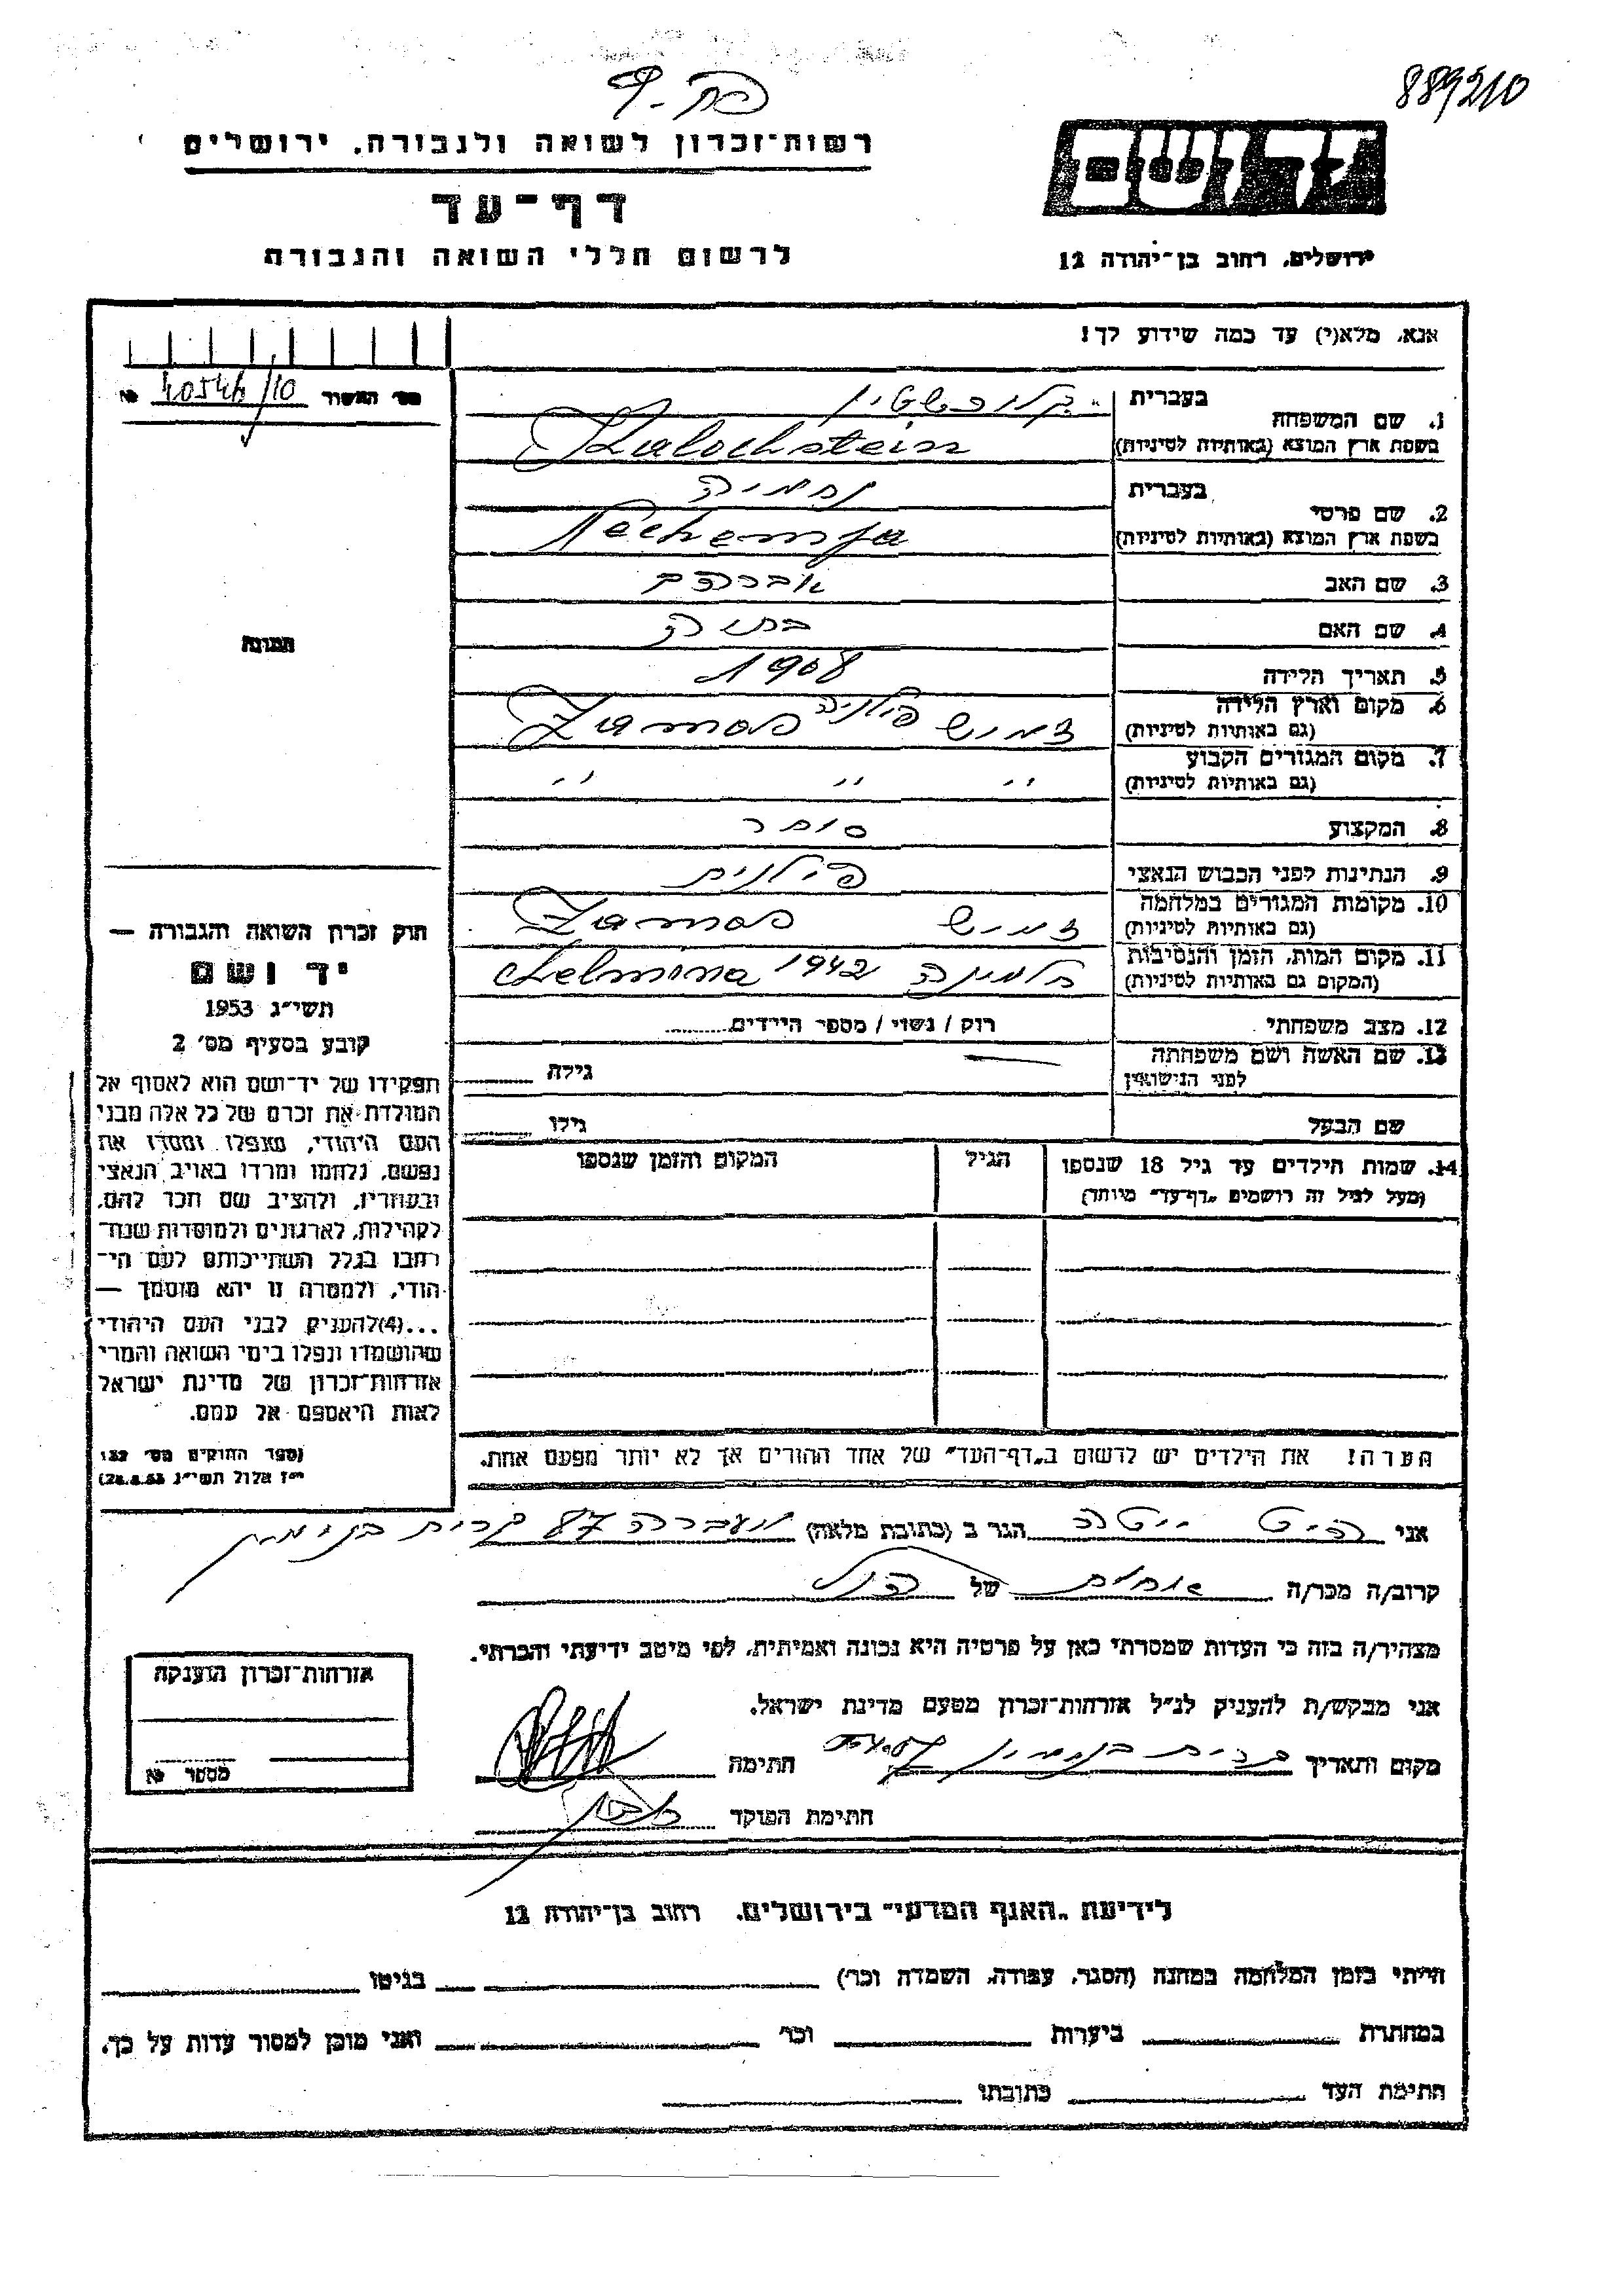 889210
רשות־זכרון לשואה ולגבורה, ירושלים
יד ושם
דף־עד
לרשום חללי השואה והגבורה
ירושלים, רחוב בן־יהודה 12
אנא, מלא(י) עד כמה שידוע לך!
מס׳ האשור 40546/10 №
1. שם המשפחה
בעברית קלוכשטין
בשפת ארץ המוצא (באותיות לטיניות) Kalochstein
2. שם פרטי
בעברית נחמיה
בשפת ארץ המוצא (באותיות לטיניות) Nechemja
3. שם האב אברהם
4. שם האם
5. תאריך הלידה 1908
6. מקום וארץ הלידה
(גם באותיות לטיניות) פולניה Zamos
7. מקום המגורים הקבוע
(גם באותיות לטיניות) " " "
8. המקצוע סוחר
9. הנתינות לפני הכבוש הנאצי פולנית
10. מקומות המגורים במלחמה
(גם באותיות לטיניות) Zamos
11. מקום המות, הזמן והנסיבות
(המקום גם באותיות לטיניות) חלמינה 1942 Chelmina
12. מצב משפחתי רוק / נשוי / מספר הילדים
13. שם האשה ושם משפחתה
לפני הנישואין
גילה
שם הבעל גילו
14. שמות הילדים עד גיל 18 שנספו
(מעל לגיל זה רושמים „דף־עד״ מיוחד)
הגיל
המקום והזמן שנספו
תמונה
חוק זכרון השואה והגבורה —
יד ושם
תשי״ג 1953
קובע בסעיף מס׳ 2
תפקידו של יד־ושם הוא לאסוף אל
המולדת את זכרם של כל אלה מבני
העם היהודי, שנפלו ומסרו את
נפשם, נלחמו ומרדו באויב הנאצי
ובעוזריו, ולהציב שם וזכר להם,
לקהילות, לארגונים ולמוסדות שנח־
רבו בגלל השתייכותם לעם הי־
הודי, ולמטרה זו יהא מוסמך —
...(4)להעניק לבני העם היהודי
שהושמדו ונפלו בימי השואה והמרי
אזרחות־זכרון של מדינת ישראל
לאות היאספם אל עמם.
(ספר החוקים מס׳ 132
י״ז אלול תשי״ג 28.8.53)
הערה! את הילדים יש לרשום ב„דף־העד״ של אחד ההורים אך לא יותר מפעם אחת.
אני הגר ב (כתובת מלאה) 87 קרית בנימין
קרוב/ה מכר/ה של
מצהיר/ה בזה כי העדות שמסרתי כאן על פרטיה היא נכונה ואמיתית, לפי מיטב ידיעתי והכרתי.
אני מבקש/ת להעניק לנ״ל אזרחות־זכרון מטעם מדינת ישראל.
מקום ותאריך קרית בנימין חתימה
חתימת הפוקד
אזרחות־זכרון הוענקה
מספר №
לידיעת „האגף המדעי״ בירושלים, רחוב בן־יהודה 12
הייתי בזמן המלחמה במחנה (הסגר, עבודה, השמדה וכו׳) בגיטו
במחתרת ביערות וכו׳ ואני מוכן למסור עדות על כך.
חתימת העד כתובתו